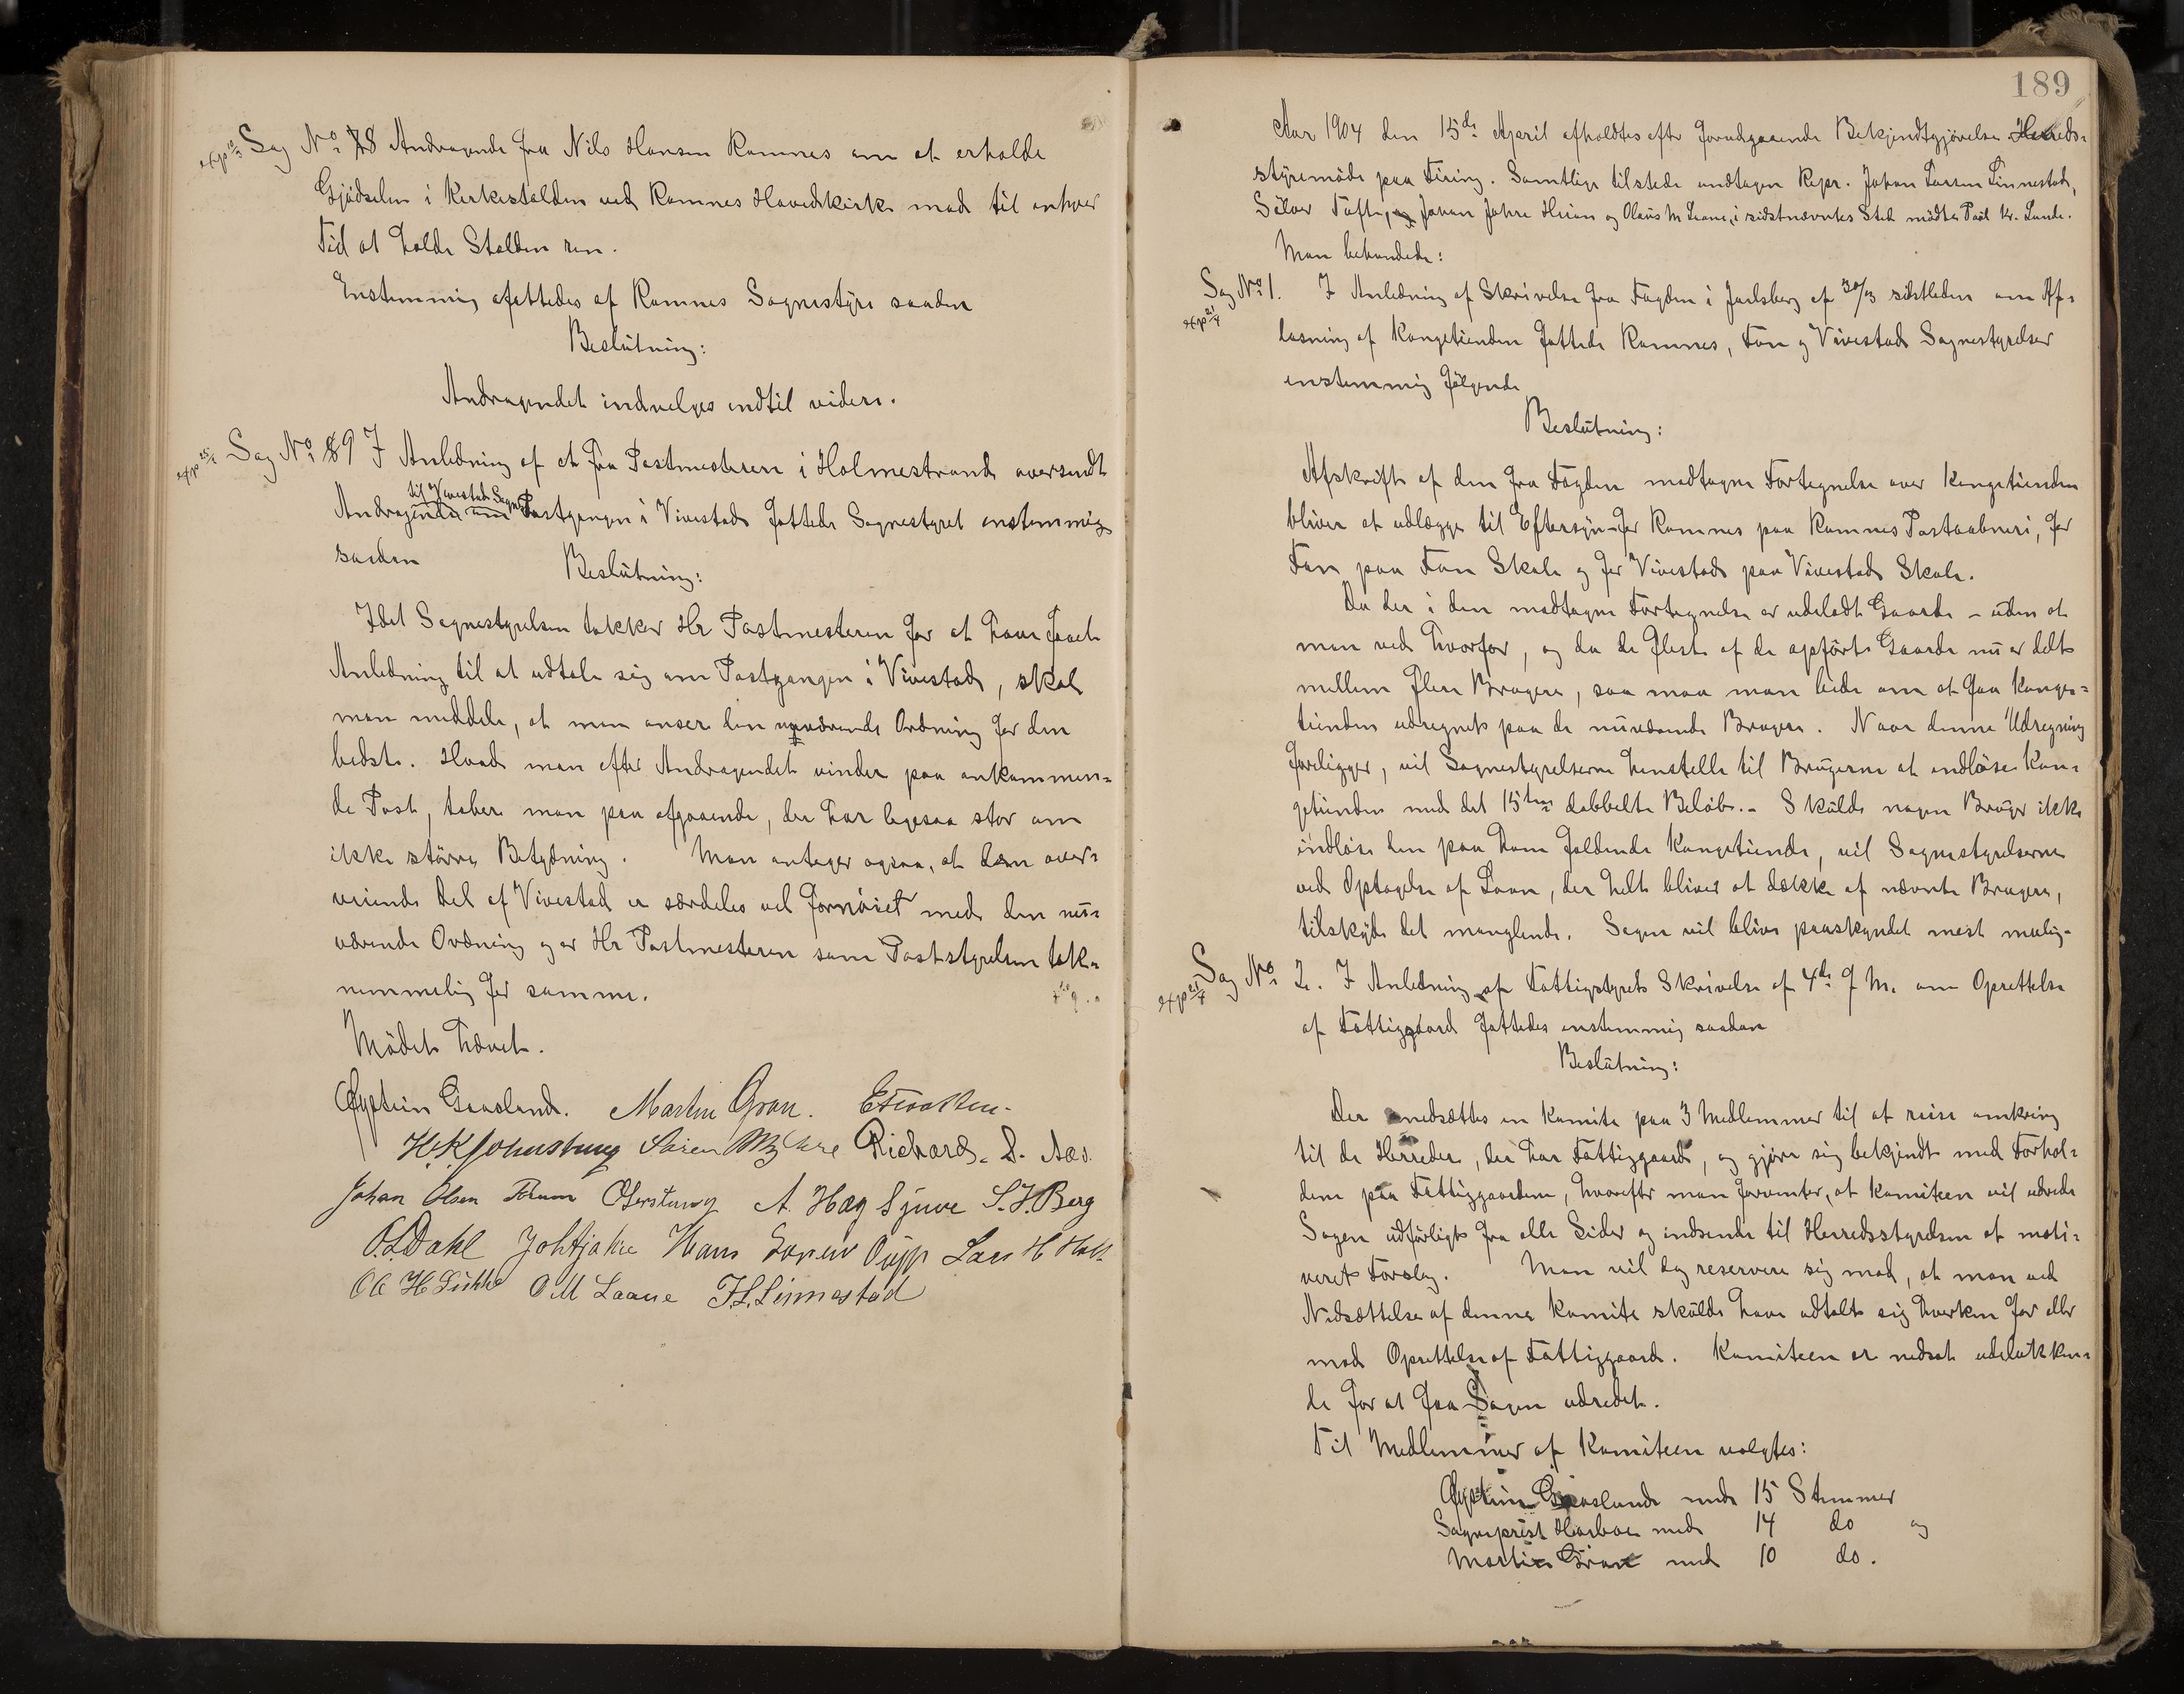 Sag No 8 Andragende fra Nils Hansen Ramnes om at erholde
exp
Gjødselen i Kirkestalden ved Ramnes Hovedkirke mod til enhver
Tid at holde Stalden ren.
Enstemmig afattedes af Ramnes Sognestyre saadan
Beslutning:
Andragendet indvelges indtil videre.
Sag No 9 I Anledning af et fra Postmesteren i Holmestrand oversendt
exp
til Vivestad Sogn
Andragende om Postgangen i Vivestad fattede Sognestyret enstemmig
saadan Beslutning:
Idet Sognestyrelsen takker Hr Postmesteren for at have faaet
Anledning til at udtale sig om Postgangen i Vivestad, skal
man meddele, at man anser den nuværende Ordning for den
bedste. Hvad man efter Andragendet vinder paa ankommen-
de Post, taber man paa afgaaende, der har ligesaa stor om
ikke større Betydning. Man antager ogsaa, at den over-
veiende Del af Vivestad er særdeles vel fornøiet med den nu-
værende Ordning og er Hr Postmesteren som Poststyrelsen tak-
nemmelig for samme.
Mødet hævet.
Øystein Graaland. Martin Gran.
Søren Myhre Richard. D. Aas.
Johan Olsen A. Hæg Sjuve S. J. Berg
O. L. Dahl Hans Lars H Holt
Ole H O M Laane J. L. Linnestad
189
Aar 1904 den 15de April afholdtes efter forudgaaende Bekjendtgjørelse Herreds-
styremøde paa Firing. Samtlige tilstede undtagen Repr. Johan Larsen Linnestad,
Johan Jahre og Olaus M Leane, i sidstnævntes Sted mødte Paul Kr. Lunde.
Man behandlede:
Sag No 1. I Anledning af Skrivelse fra Fogden i Jarlsberg af 30/3 sidstleden om Af-
exp 21/4
løsning af Kongetienden fattede Ramnes, Fon og Vivestad Sognestyrelser
enstemmig følgende
Beslutning:
Afskrift af den fra Fogden modtagne Fortegnelse over Kongetienden
bliver at udlægge til Eftersyn for Ramnes paa Ramnes Postaabneri, for
Fon paa Fon Skole og for Vivestad paa Vivestad Skole.
Da der i den modtagne Fortegnelse er udeladt Gaarde – uden at
man ved hvorfor, og da de fleste af de opførte Gaarde nu er delt
mellem flere Brugere, saa maa man bede om at faa Konge-
tienden udregnet paa de nuværende Brugere. Naar denne Udregning
foreligger, vil Sognestyrelserne henstille til Brugerne at indløse Kon-
getienden med det 15 dobbelte Beløb. – Skulde nogen Bruger ikke
indløse den paa ham faldende Kongetiende, vil Sognestyrelserne
ved Optagelse af Laan, der helt bliver at dække af nævnte Brugere,
tilskyde det manglende. Sagen vil blive paaskyndet mest mulig.
Sag No 2. I Anledning af Fattigstyrets Skrivelse af 4de f M. om Oprettelse
exp 21/4
af Fattiggaard fattedes enstemmig saadan
Beslutning:
Der nedsættes en Komite paa 3 Medlemmer til at reise omkring
til de Herreder, der har Fattiggaard, og gjøre sig bekjendt med Forhol-
dene paa Fattiggaardene, hvorefter man forventer, at Komiteen vil udrede
Sagen udførligt fra alle Sider og indsende til Herredsstyrelsen et moti-
veret Forslag. Man vil dog reservere sig mod, at man ved
Nedsættelse af denne Komite skulde have udtalt sig hverken for eller
mod Oprettelse af Fattiggaard. Komiteen er nedsat udelukken-
de for at faa Sagen udredet.
Til Medlemmer af Komiteen valgtes:
Øystein Graaslund med 15 Stemmer
Sogneprest Harboe med 14 do og
Martin Gran med 10 do.